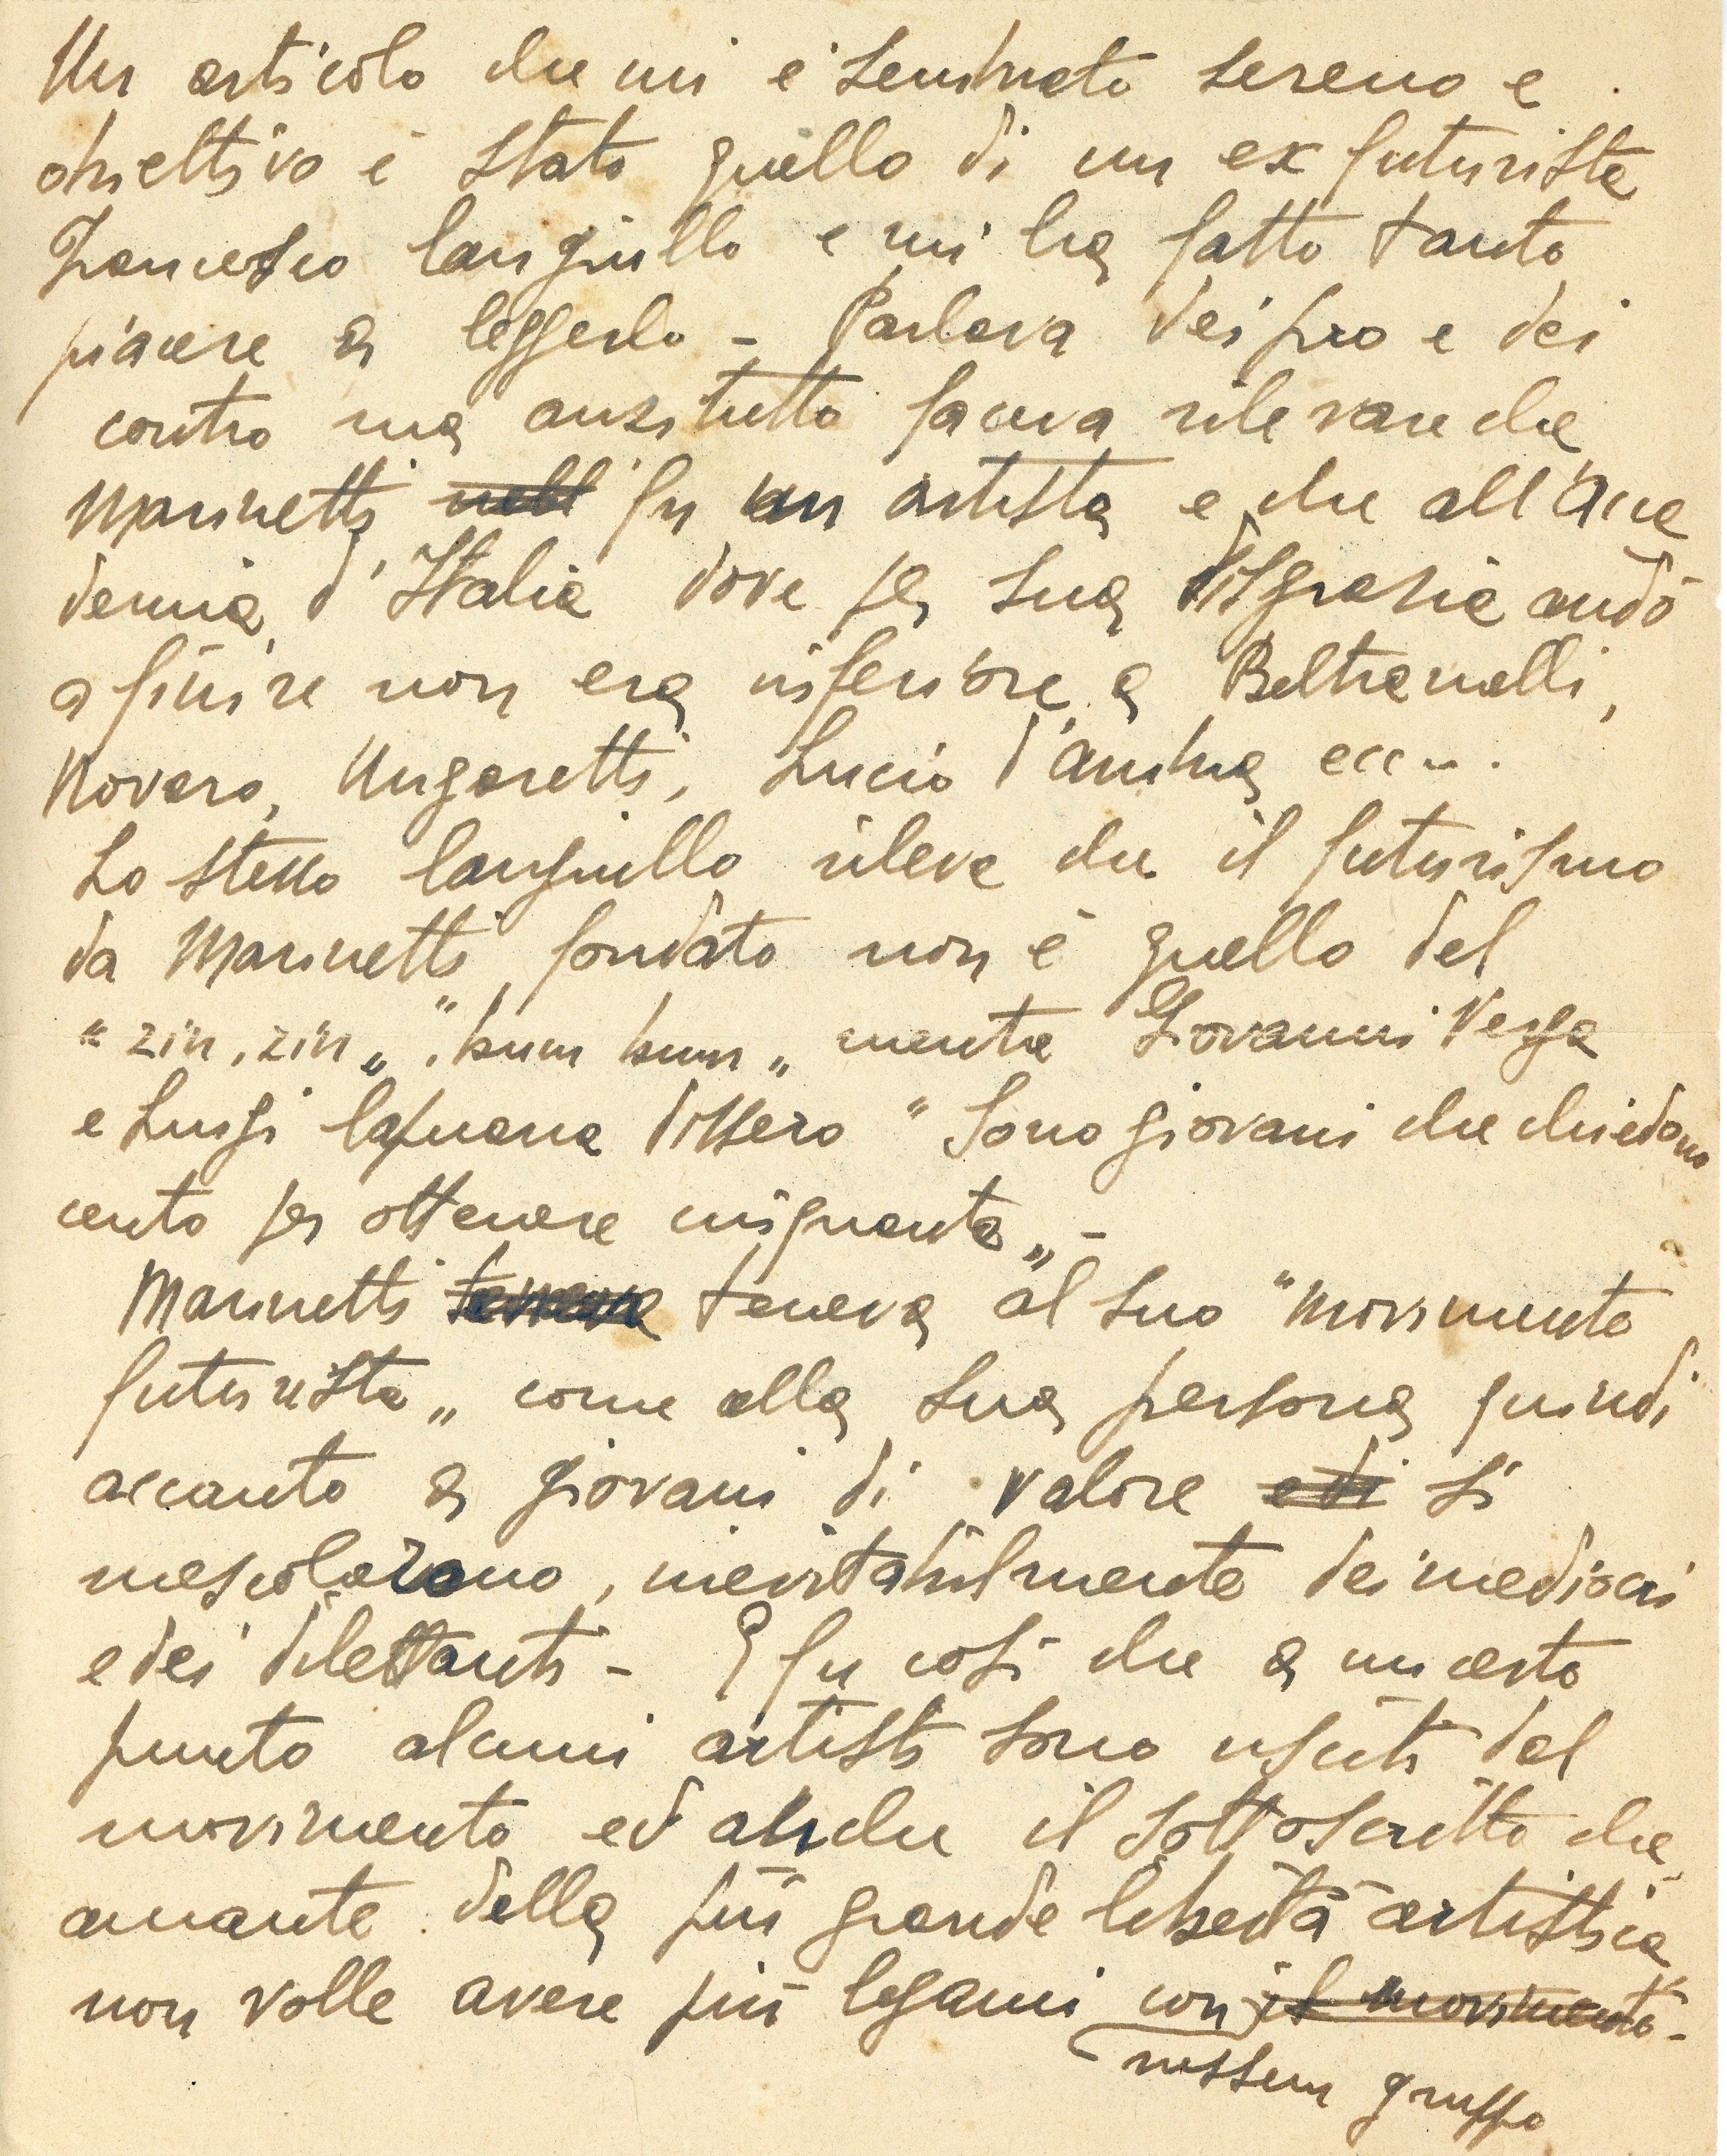 Un articolo che mi è sembrato sereno e
obiettivo è stato quello di un ex futurista
Francesco Cangiullo e mi ha fatto tanto
piacere a leggerlo - Parlava dei pro e dei
contro ma anzitutto faceva rilevare che
Marinetti nell' fu un artista e che all'Acca
demia d'Italia dove per sua disgrazia andò
a finire non era inferiore a Beltramelli,
Novaro, Ungaretti, Lucio d'Ambra ecc...
Lo stesso Cangiullo rileva che il futurismo
da Marinetti fondato non è quello del
"zin, zin„ "bum bum„ mentre Giovanni Verga
e Luigi Capuana dissero "Sono giovani che chiedono
cento per ottenere cinquanta„ -
Marinetti teneva teneva al suo "Movimento
futurista„ come alla sua persona quindi
accanto a giovani di valore e di si
mescolarono, inevitabilmente dei mediocri
e dei dilettanti - E fu così che a un certo
punto alcuni artisti sono usciti dal
movimento ed anche il sottoscritto che
amante della più grande libertà artistica
non volle avere più legami con il movimento -
nessun gruppo